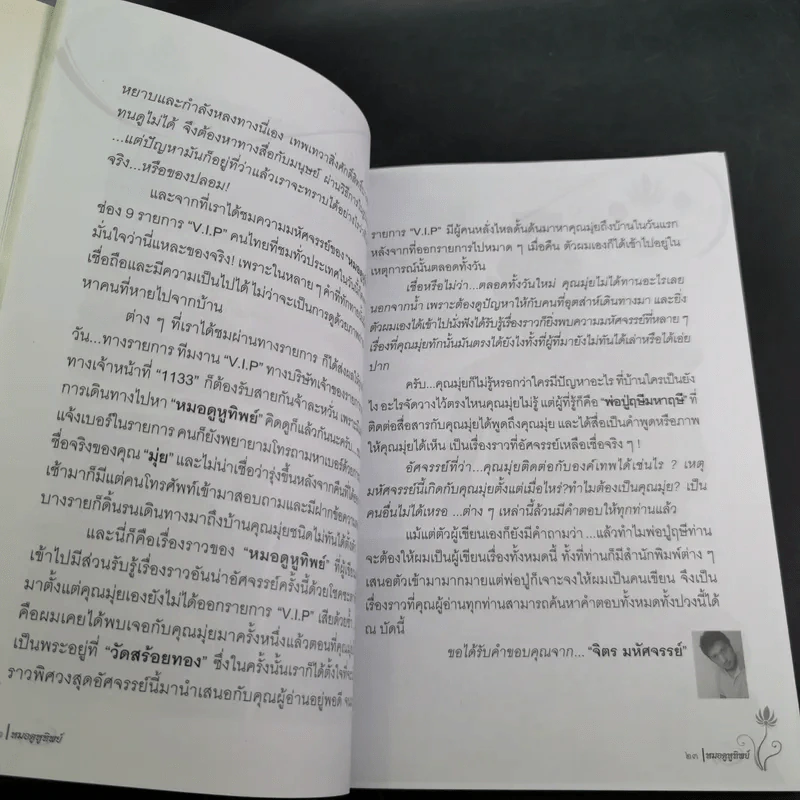 หยาบและกำลังหลงทางนี่เอง เทพเทวาสิ่งศักดิ์สิทธิ์
ทนดูไม่ได้ จึงต้องหาทางสื่อกับมนุษย์ ผ่านวิธีการ
...แต่ปัญหามันก็อยู่ที่ว่าแล้วเราจะทราบได้อย่างไร
จริง...หรือของปลอม!
และจากที่เราได้ชมความมหัศจรรย์ของ "หมอดู
ช่อง 9 รายการ "V.I.P" คนไทยที่ชมทั่วประเทศในวัน
มั่นใจว่านี่แหละของจริง! เพราะในหลาย ๆ คำที่ทักทาย
เชื่อถือและมีความเป็นไปได้ ไม่ว่าจะเป็นการดูด้วยภาพ
หาคนที่หายไปจากบ้าน
ต่าง ๆ ที่เราได้ชมผ่านทางรายการ ก็ได้ส่งผล
วัน...ทางรายการ ทีมงาน "V.I.P" ทางบริษัทเจ้าของรายการ
ทางเจ้าหน้าที่ "1133" ก็ต้องรับสายกันจ้าละหวั่น เพราะ
การเดินทางไปหา "หมอดูหูทิพย์" คิดดูก็แล้วกันนะครับ...
แจ้งเบอร์ในรายการ คนก็ยังพยายามโทรถามหาเบอร์ด้วยการ
ชื่อจริงของคุณ "มุ่ย" และไม่น่าเชื่อว่ารุ่งขึ้นหลังจากคืนที่ได้
เข้ามาก็มีแต่คนโทรศัพท์เข้ามาสอบถามและมีฝากข้อความ
บางรายก็ดิ้นรนเดินทางมาถึงบ้านคุณมุ่ยชนิดไม่ทันได้ตั้งตัว
และนี่ก็คือเรื่องราวของ "หมอดูหูทิพย์" ที่ผู้เขียน
เข้าไปมีส่วนรับรู้เรื่องราวอันน่าอัศจรรย์ครั้งนี้ด้วยโชคชะตา
มาตั้งแต่คุณมุ่ยเองยังไม่ได้ออกรายการ "V.I.P" เสียด้วยซ้ำ
คือผมเคยได้พบเจอกับคุณมุ่ยมาครั้งหนึ่งแล้วตอนที่คุณ
เป็นพระอยู่ที่ "วัดสร้อยทอง" ซึ่งในครั้งนั้นเราก็ได้ตั้งใจที่จะ
ราวพิศวงสุดอัศจรรย์นี้มานำเสนอกับคุณผู้อ่านอยู่พอดี
|หมอดูหูทิพย์
รายการ "V.I.P" มีผู้คนหลั่งไหลดั้นด้นมาหาคุณมุ่ยถึงบ้านในวันแรก
หลังจากที่ออกรายการไปหมาด ๆ เมื่อคืน ตัวผมเองก็ได้เข้าไปอยู่ใน
เหตุการณ์นั้นตลอดทั้งวัน
เชื่อหรือไม่ว่า...ตลอดทั้งวันใหม่ คุณมุ่ยไม่ได้ทานอะไรเลย
นอกจากน้ำ เพราะต้องดูปัญหาให้กับคนที่อุตส่าห์เดินทางมา และยิ่ง
ตัวผมเองได้เข้าไปนั่งฟังได้รับรู้เรื่องราวก็ยิ่งพบความมหัศจรรย์ที่หลาย ๆ
เรื่องที่คุณมุ่ยทักนั้นมันตรงได้ยังไงทั้งที่ผู้ที่มายังไม่ทันได้เล่าหรือได้เอ่ย
ปาก
ครับ...คุณมุ่ยก็ไม่รู้หรอกว่าใครมีปัญหาอะไร ที่บ้านใครเป็นยัง
ไง อะไรจัดวางไว้ตรงไหนคุณมุ่ยไม่รู้ แต่ผู้ที่รู้ก็คือ "พ่อปู่ฤษีมหาฤษี" ที่
ติดต่อสื่อสารกับคุณมุ่ยได้พูดถึงคุณมุ่ย และได้สื่อเป็นคำพูดหรือภาพ
ให้คุณมุ่ยได้เห็น เป็นเรื่องราวที่อัศจรรย์เหลือเชื่อจริง ๆ !
อัศจรรย์ที่ว่า...คุณมุ่ยติดต่อกับองค์เทพได้เช่นไร ? เหตุ
มหัศจรรย์นี้เกิดกับคุณมุ่ยตั้งแต่เมื่อไหร่?ทำไมต้องเป็นคุณมุ่ย? เป็น
คนอื่นไม่ได้เหรอ ...ต่าง ๆ เหล่านี้ล้วนมีคำตอบให้ทุกท่านแล้ว
แม้แต่ตัวผู้เขียนเองก็ยังมีคำถามว่า ...แล้วทำไมพ่อปู่ฤษีท่าน
จะต้องให้ผมเป็นผู้เขียนเรื่องทั้งหมดนี้ ทั้งที่ท่านก็มีสำนักพิมพ์ต่าง ๆ
เสนอตัวเข้ามามากมายแต่พ่อปู่ก็เจาะจงให้ผมเป็นคนเขียน จึงเป็น
เรื่องราวที่คุณผู้อ่านทุกท่านสามารถค้นหาคำตอบทั้งหมดทั้งปวงนี้ได้
ณ บัดนี้
ขอได้รับคำขอบคุณจาก... "จิตร มหัศจรรย์"
๒๓ |หมอดูหูทิพย์